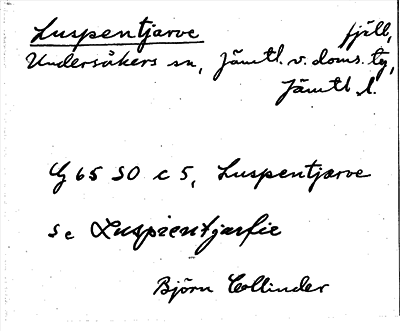 Luspentjarve fjäll,
Undersåkers sn, Jämtl. v. doms. tg,
Jämtl l.
G 65 SO c 5, Luspentjarve
se Luspientjarfie
Björn Collinder